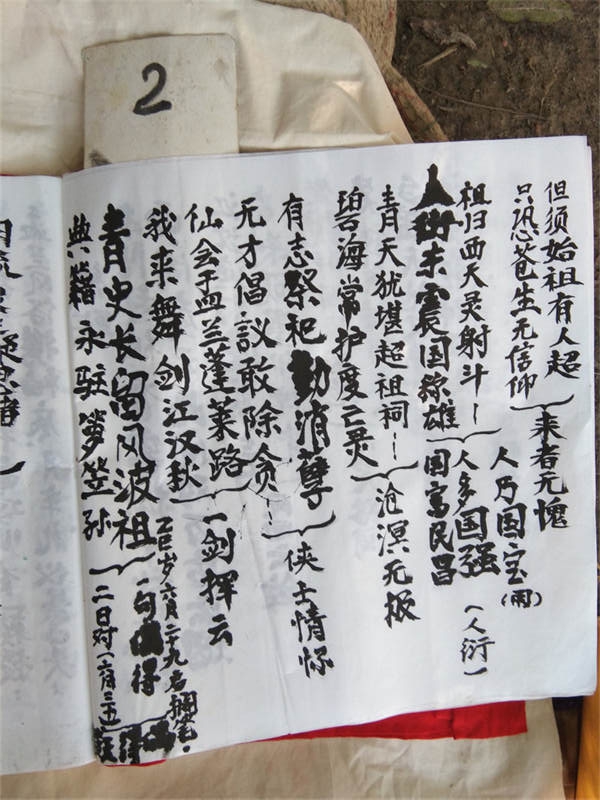 2
但须始祖有人超
只恐苍生无信仰
来者无愧
祖归西天灵射斗
人街未震国称雄
人乃国宝(用)
人多国强
国富民昌
(人衍)
青天犹堪超祖祠
碧海常护度亡灵
沧溟无极
有志祭祀勤消孽
无才倡议敢除贪
侠士情怀
仙会盂兰蓬莱路
我来舞剑江汉秋
一剑挥云
青史长留风波祖
典籍永驻箩笠孙
岁六月二十九
二日对